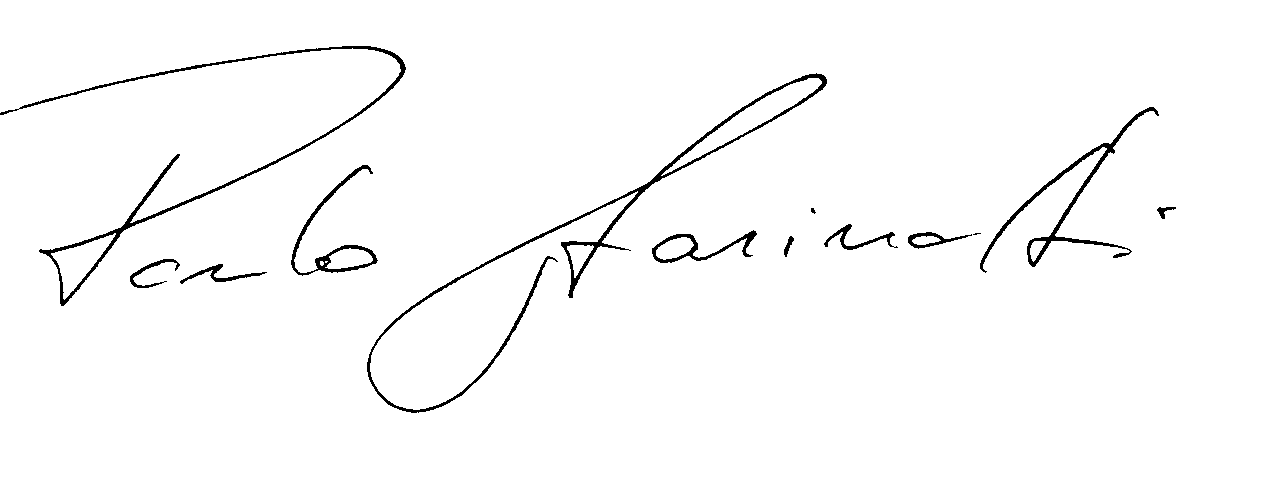 Paolo Farinatti